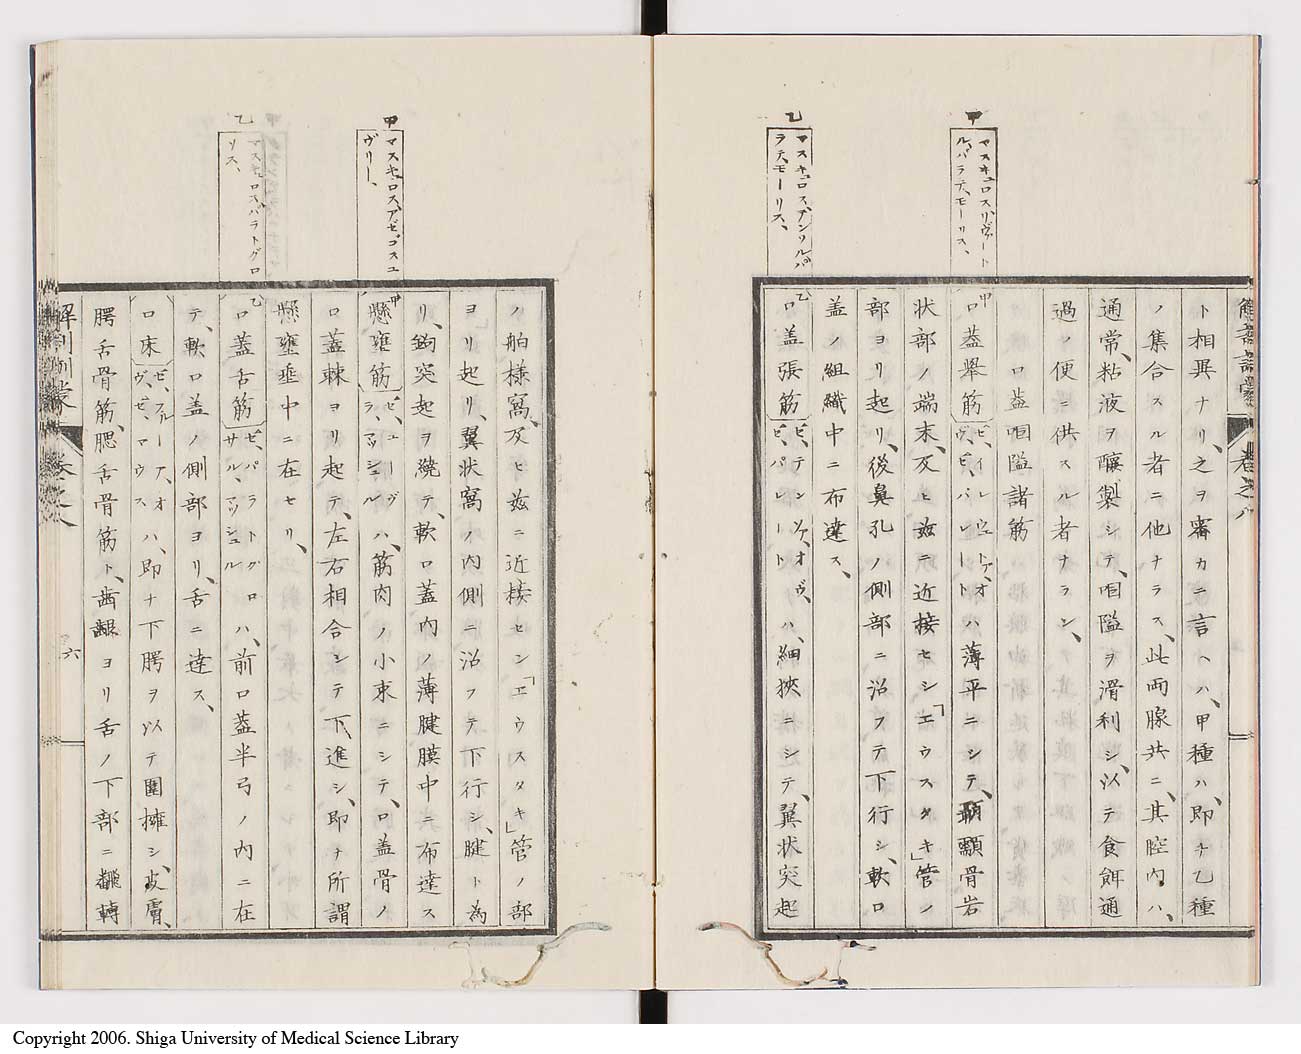 甲
マスキュロスリヴァート
ルパラテモーリス、
乙
マスキュロスアンソルバ
ラテモーリス、
ト相異ナリ、之ヲ審カニ言ヘハ、甲種ハ、即チ乙種
ノ集合スル者ニ他ナラス、此両腺共ニ、其腔内ハ、
通常、粘液ヲ釀製シテ、咽隘ヲ滑利シ、以テ食餌通
過ノ便ニ供スル者ナラン、
口蓋咽隘諸筋
甲口蓋擧筋ゼ、イレウェトァ、オヴ、ゼ、パレートハ薄平ニシテ、顳顬骨岩
状部ノ端末、及ヒ茲ニ近接セシ「エウスタキ」管ノ
部ヨリ起リ、後鼻孔ノ側部ニ沿フテ下行シ、軟口
蓋ノ組織中ニ布達ス、
乙口蓋張筋ゼ、テンソァ、オヴ、ゼ、パレートハ、細狹ニシテ、翼状突起
甲
マスキュロスアゼゴスユ
ヴリー、
乙
マスキュロスパラトグロ
ソス、
ノ舶様窩、及ヒ茲ニ近接セシ「エウスタキ」管ノ部
ヨリ起リ、翼状窩ノ内側ニ沿フテ下行シ、腱ト為
リ、鉤突起ヲ繞テ、軟口蓋内ノ薄腱膜中ニ布達ス
甲懸壅筋ゼ、ユーヴラマッシュルハ、筋肉ノ小束ニシテ、口蓋骨ノ
口蓋棘ヨリ起テ、左右相合シテ下進シ、即チ所謂
懸壅垂中ニ在セリ、
乙口蓋舌筋ゼ、パラトグロサル、マッシュルハ、前口蓋半弓ノ内ニ在
テ、軟口蓋ノ側部ヨリ、舌ニ達ス、
口床ゼ、フルーア、オヴ、ゼ、マウスハ、即チ下腭ヲ以テ圍擁シ、皮膚、
腭舌骨筋、腮舌骨筋ト、齒齦ヨリ舌ノ下部ニ飜轉
六
Copyright 2006. Shiga University of Medical Science Library